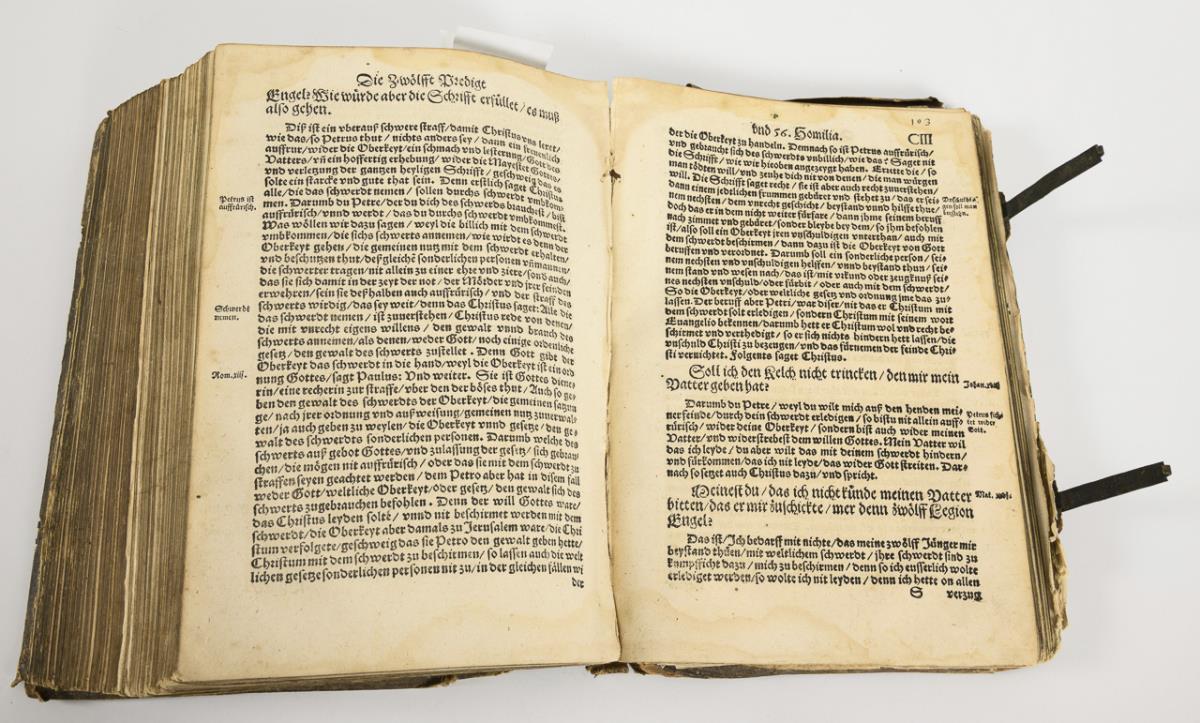 Die Zwölfft Predigt
Engel? Wie würde aber die Schrifft erfüllet / es muß
also gehen.
Diß ist ein vberauß schwere straff / damit Christus vns leret /
wie das / so Petrus thut / nichts anders sey / dann ein freuenlich
auffrur / wider die Oberkeyt / ein schmach vnd lesterung / Gott des
Vatters / vñ ein hoffertig erhebung / wider die Mayestet Gottes /
vnd verletzung der gantzen heyligen Schrifft / geschweig das es
solte ein starcke vnd gutte that sein. Denn erstlich saget Christus
alle / die das schwerdt nemen / sollen durchs schwerdt vmbkom⸗
men. Darumb du Petre / der du dich des schwerds brauchest / bist
auffrürisch / vnnd werdt / das du durchs schwerdt vmbkommest.
Was wöllen wir dazu sagen / weyl die billich mit dem schwerdt
vmbkommen / die sichs schwerts annemen / wie wirdt es denn der
Oberkeyt gehen / die gemeinen nutz mit dem schwerdt erhalten /
vnd beschutzen thut / deßgleichẽ sonderlichen personen vñ mannen /
die schwerter tragen / nit allein zu einer ehre vnd ziere / sond auch /
das sie sich damit in der zeyt der not / der Mörder vnd jrer feinden
erwehren / sein sie deßhalben auch auffrürisch / vnd der straff des
schwerts wirdig / das sey weit / denn das Christus saget: Alle die
das schwerdt nemen / ist zuuerstehen / Christus rede von denen /
die mit vnrecht eigens willens / den gewalt vnnd brauch des
schwerts annemen / als denen / weder Gott / noch einige ordenliche
gesetz / den gewalt des schwerts zustellet. Denn Gott gibt der
Oberkeyt das schwerdt in die hand / weyl die Oberkeyt ist ein ord
nung Gottes / sagt Paulus: Vnd weiter. Sie ist Gottes diene⸗
rin / eine recherin zur straffe / vber den der böses thut / Auch so ge⸗
ben den gewalt des schwerdts der Oberkeyt / die gemeinen satzun
ge / nach jrer ordnung vnd außweisung / gemeinen nutz zuuerwal⸗
ten / ja auch geben zu weylen / die Oberkeyt vnnd gesetze / den ge⸗
walt des schwerdts sonderlichen personen. Darumb welche des
schwerts auß gebot Gottes / vnd zulassung der gesetz / sich gebrau
chen / die mögen nit auffrürisch / oder das sie mit dem schwerdt zu
straffen seyen geachtet werden / dem Petro aber hat in disem fall
weder Gott / weltliche Oberkeyt / oder gesetz / den gewalt sich des
schwerts zugebrauchen befohlen. Denn der will Gottes ware /
das Christus leyden solte / vnnd nit beschirmet werden mit dem
schwerdt / die Oberkeyt aber damals zu Jerusalem ware / die Chri
stum verfolgete / geschweig das sie Petro den gewalt geben hette /
Christum mit dem schwerdt zu beschirmen / so lassen auch die welt
lichen gesetze sonderlichen personen nit zu / in der gleichen fällen wi
der
Petrus ist
auffrürisch.
Schwerdt
nemen.
Rom. xiij.
103
vnd 56. Homilia.
CIII
der die Oberkeyt zu handeln. Demnach so ist Petrus auffrürisch /
vnd gebraucht sich des schwerdts vnbillich / wie das? Saget nit
die Schrifft / wie wir hieoben angezeygt haben. Errette die / so
man tödten will / vnd zeuhe dich nit von denen / die man würgen
will. Die Schrifft saget recht / sie ist aber auch recht zuuerstehen /
dann einem jedtlichen frummen gebüret vnd stehet zu / das er sei⸗
nem nechsten / dem vnrecht geschicht / beystand vnnd hilffe thue /
doch das er in dem nicht weiter fürfare / dann jhme seinem beruff
nach zimmet vnd gebüret / sonder bleybe bey dem / so jhm befohlen
ist / also soll ein Oberkeyt jren vnschuldigen vnterthan / auch mit
dem schwerdt beschirmen / dann dazu ist die Oberkeyt von Gott
beruffen vnd verordnet. Darumb soll ein sonderliche person / sei⸗
nem nechsten vnd vnschuldigen helffen / vnnd beystand thun / sei⸗
nem stand vnd wesen nach / das ist / mit vrkund oder zeugknuß sei⸗
nes nechsten vnschuld / oder fürbit / oder auch mit dem schwerdt /
So die Oberkeyt / oder weltliche gesetz vnd ordnung jme das zu⸗
lassen. Der beruff aber Petri / war diser / nit das er Christum mit
dem schwerdt solt erledigen / sondern Christum mit seinem wort
Euangelio bekennen / darumb hett er Christum wol vnd recht be⸗
schirmet vnd verthedigt / so er sich nichts hindern hett lassen / die
vnschuld Christi zu bezeugen / vnd das fürnemen der feinde Chri⸗
sti vernichtet. Folgents saget Christus.
Soll ich den Kelch nicht trincken / den mir mein
Vatter geben hat?
Darumb du Petre / weyl du wilt mich auß den henden mei⸗
ner feinde / durch dein schwerdt erledigen / so bistu nit allein auff⸗
rürisch / wider deine Oberkeyt / sondern bist auch wider meinen
Vatter / vnd widerstrebest dem willen Gottes. Mein Vatter wil
das ich leyde / du aber wilt das mit deinem schwerdt hindern /
vnd fürkommen / das ich nit leyde / das wider Gott streiten. Dar⸗
nach so setzet auch Christus dazu / vnd spricht.
Meinest du / das ich nicht künde meinen Vatter
bieten / das er mir zuschickte / mer denn zwölff Legion
Engel?
Das ist / Ich bedarff mit nichte / das meine zwölff Jünger mir
beystand thüen / mit weltlichem schwerdt / jhre schwerdt sind zu
kumpfficht dazu / mich zu beschirmen / denn so ich eusserlich wolte
erlediget werden / so wolte ich nit leyden / denn ich hette on allen
S verzug
gen soll man
beystehen.
Johan. xviij
Petrus fich⸗
tet wider
Gott.
Mat. xxvj.